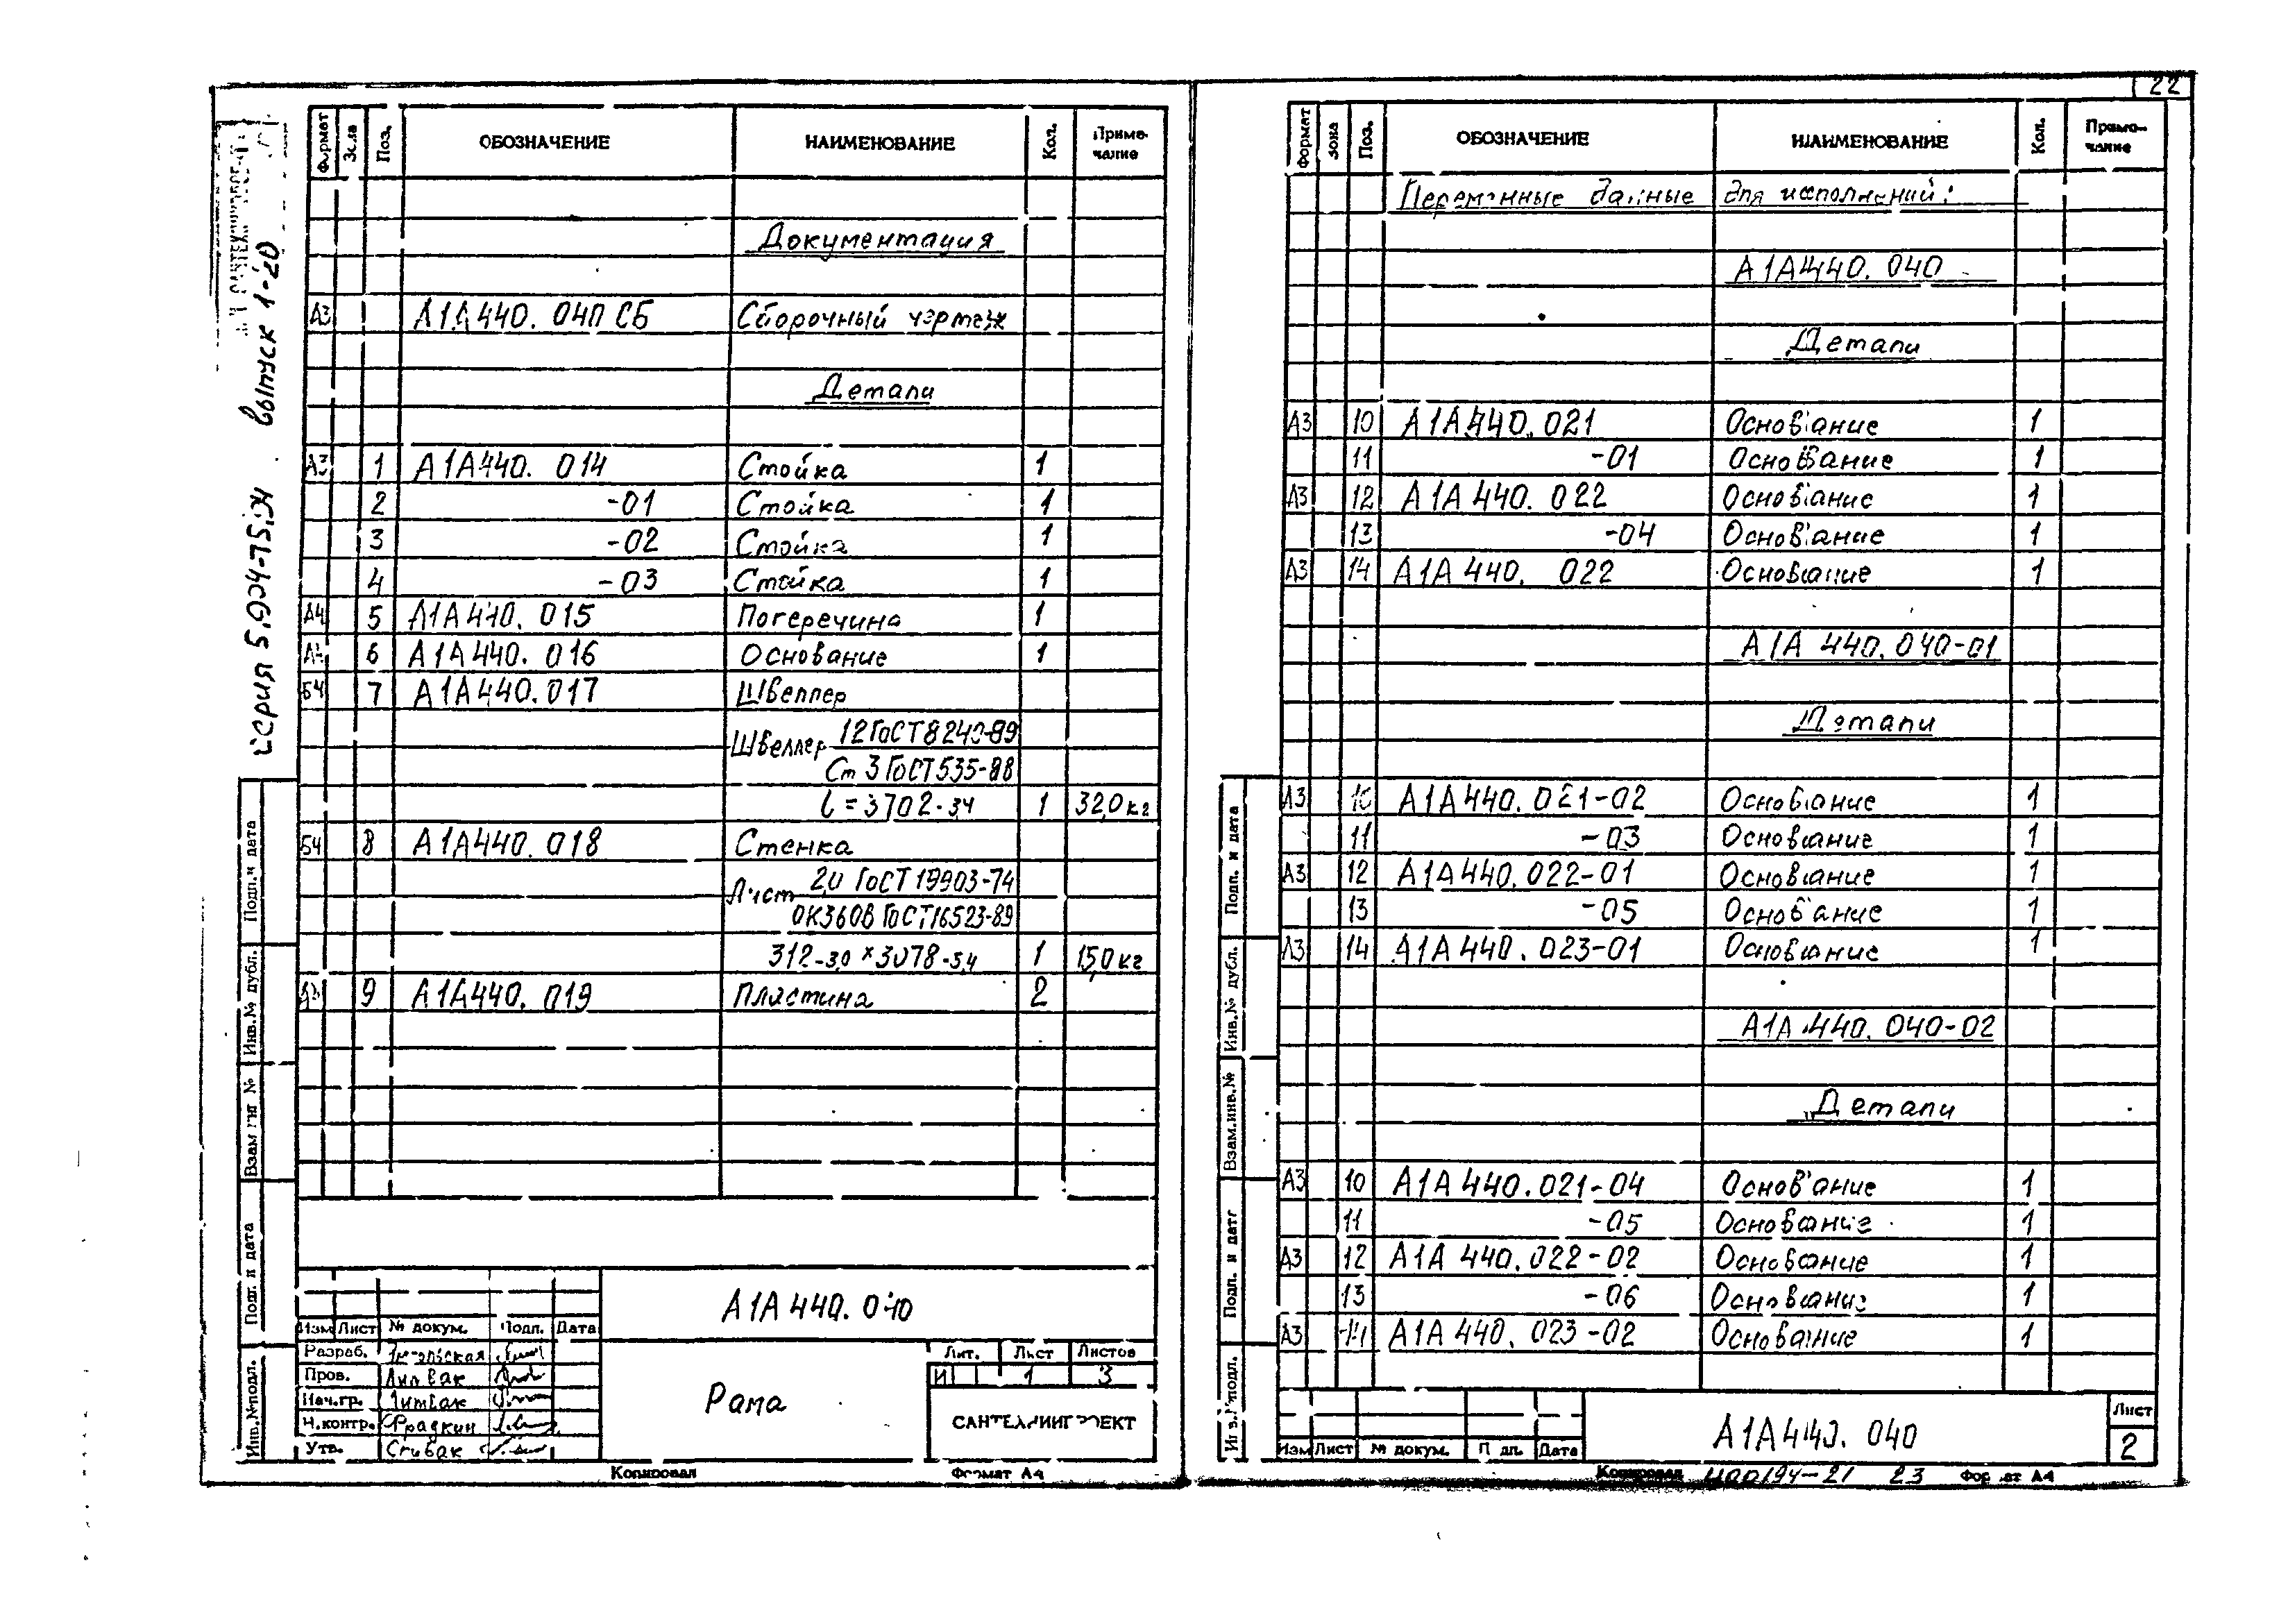 22
серия 5.904-75.94 выпуск 1-20
Формат Зона Поз. ОБОЗНАЧЕНИЕ НАИМЕНОВАНИЕ Кол. Примечание
Документация
А3 А1А440.040 СБ Сборочный чертеж
Детали
А3 1 А1А440.014 Стойка 1
2 -01 Стойка 1
3 -02 Стойка 1
4 -03 Стойка 1
А4 5 А1А440.015 Поперечина 1
А4 6 А1А440.016 Основание 1
БЧ 7 А1А440.017 Швеллер
Швеллер 12 ГОСТ 8240-89
Ст 3 ГОСТ 535-88
l = 3702-3,4 1 32,0 кг
БЧ 8 А1А440.018 Стенка
Лист 2,0 ГОСТ 19903-74
ОК360В ГОСТ 16523-89
312-3,0 × 3078-5,4 1 15,0 кг
9 А1А440.019 Пластина 2
Подп. и дата
Инв.№ дубл.
Взам инв №
Подп. и дата
Инв.№ подл.
А1А440.040
Изм Лист № докум. Подп. Дата
Разраб.
Пров. Литвак
Нач.гр. Литвак
Н.контр. Фрадкин
Утв. Спивак
Рама
Лит. Лист Листов
И 1 3
САНТЕХНИИПРОЕКТ
Копировал Формат А4
Формат Зона Поз. ОБОЗНАЧЕНИЕ НАИМЕНОВАНИЕ Кол. Примечание
Переменные данные для исполнений:
А1А440.040
Детали
А3 10 А1А440.021 Основание 1
11 -01 Основание 1
А3 12 А1А440.022 Основание 1
13 -04 Основание 1
А3 14 А1А440.022 Основание 1
А1А 440.040-01
Детали
А3 10 А1А440.021-02 Основание 1
11 -03 Основание 1
А3 12 А1А440.022-01 Основание 1
13 -05 Основание 1
А3 14 А1А440.023-01 Основание 1
А1А 440.040-02
Детали
А3 10 А1А440.021-04 Основание 1
11 -05 Основание 1
А3 12 А1А440.022-02 Основание 1
13 -06 Основание 1
А3 14 А1А440.023-02 Основание 1
Подп. и дата
Инв.№ дубл.
Взам.инв.№
Подп. и дата
Инв.№ подл.
Изм Лист № докум. Подп. Дата
А1А440.040
Лист
2
Копировал Ц00194-21 23 Формат А4